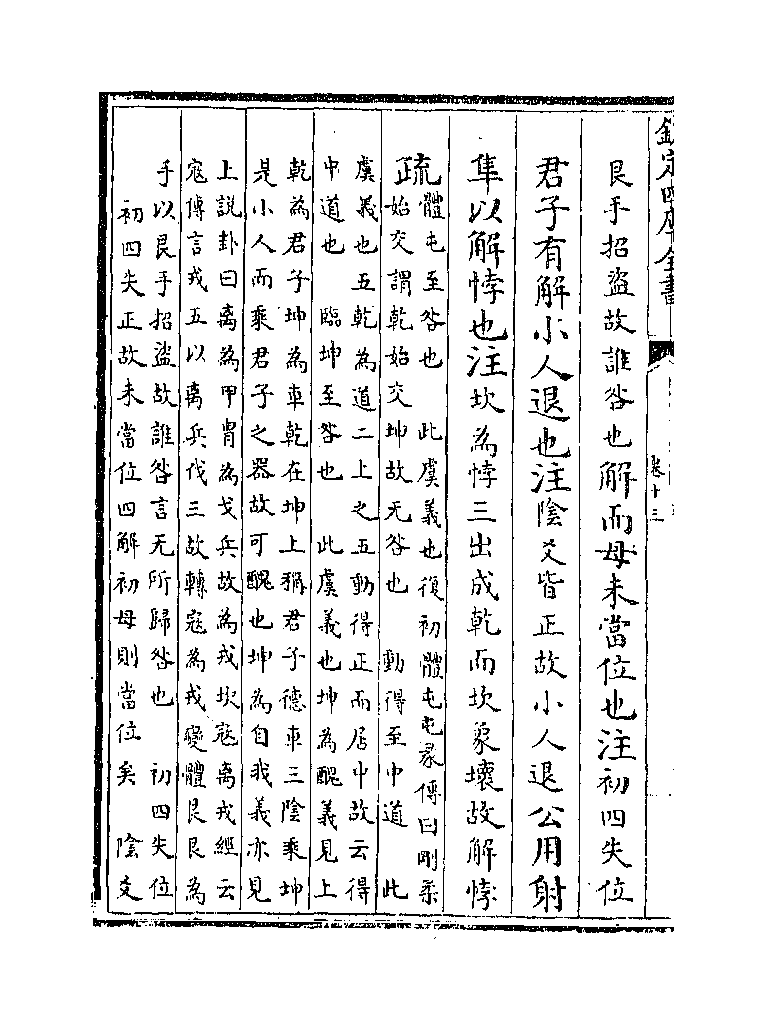 欽定四庫全書
卷十三
艮手招盜故誰咎也解而母未當位也注初四失位
君子有解小人退也注陰爻皆正故小人退公用射
隼以解悖也注坎為悖三出成乾而坎象壞故解悖
疏體屯至咎也　此虞義也復初體屯屯彖傳曰剛柔
始交謂乾始交坤故无咎也　動得至中道　此
虞義也五乾為道二上之五動得正而居中故云得
中道也　臨坤至咎也　此虞義也坤為醜義見上
乾為君子坤為車乾在坤上稱君子德車三陰乘坤
是小人而乘君子之器故可醜也坤為自我義亦見
上說卦曰離為甲胄為戈兵故為戎坎寇離戎經云
寇傳言戎五以離兵伐三故轉寇為戎變體艮艮為
手以艮手招盜故誰咎言无所歸咎也　初四失位
初四失正故未當位四解初母則當位矣　陰爻